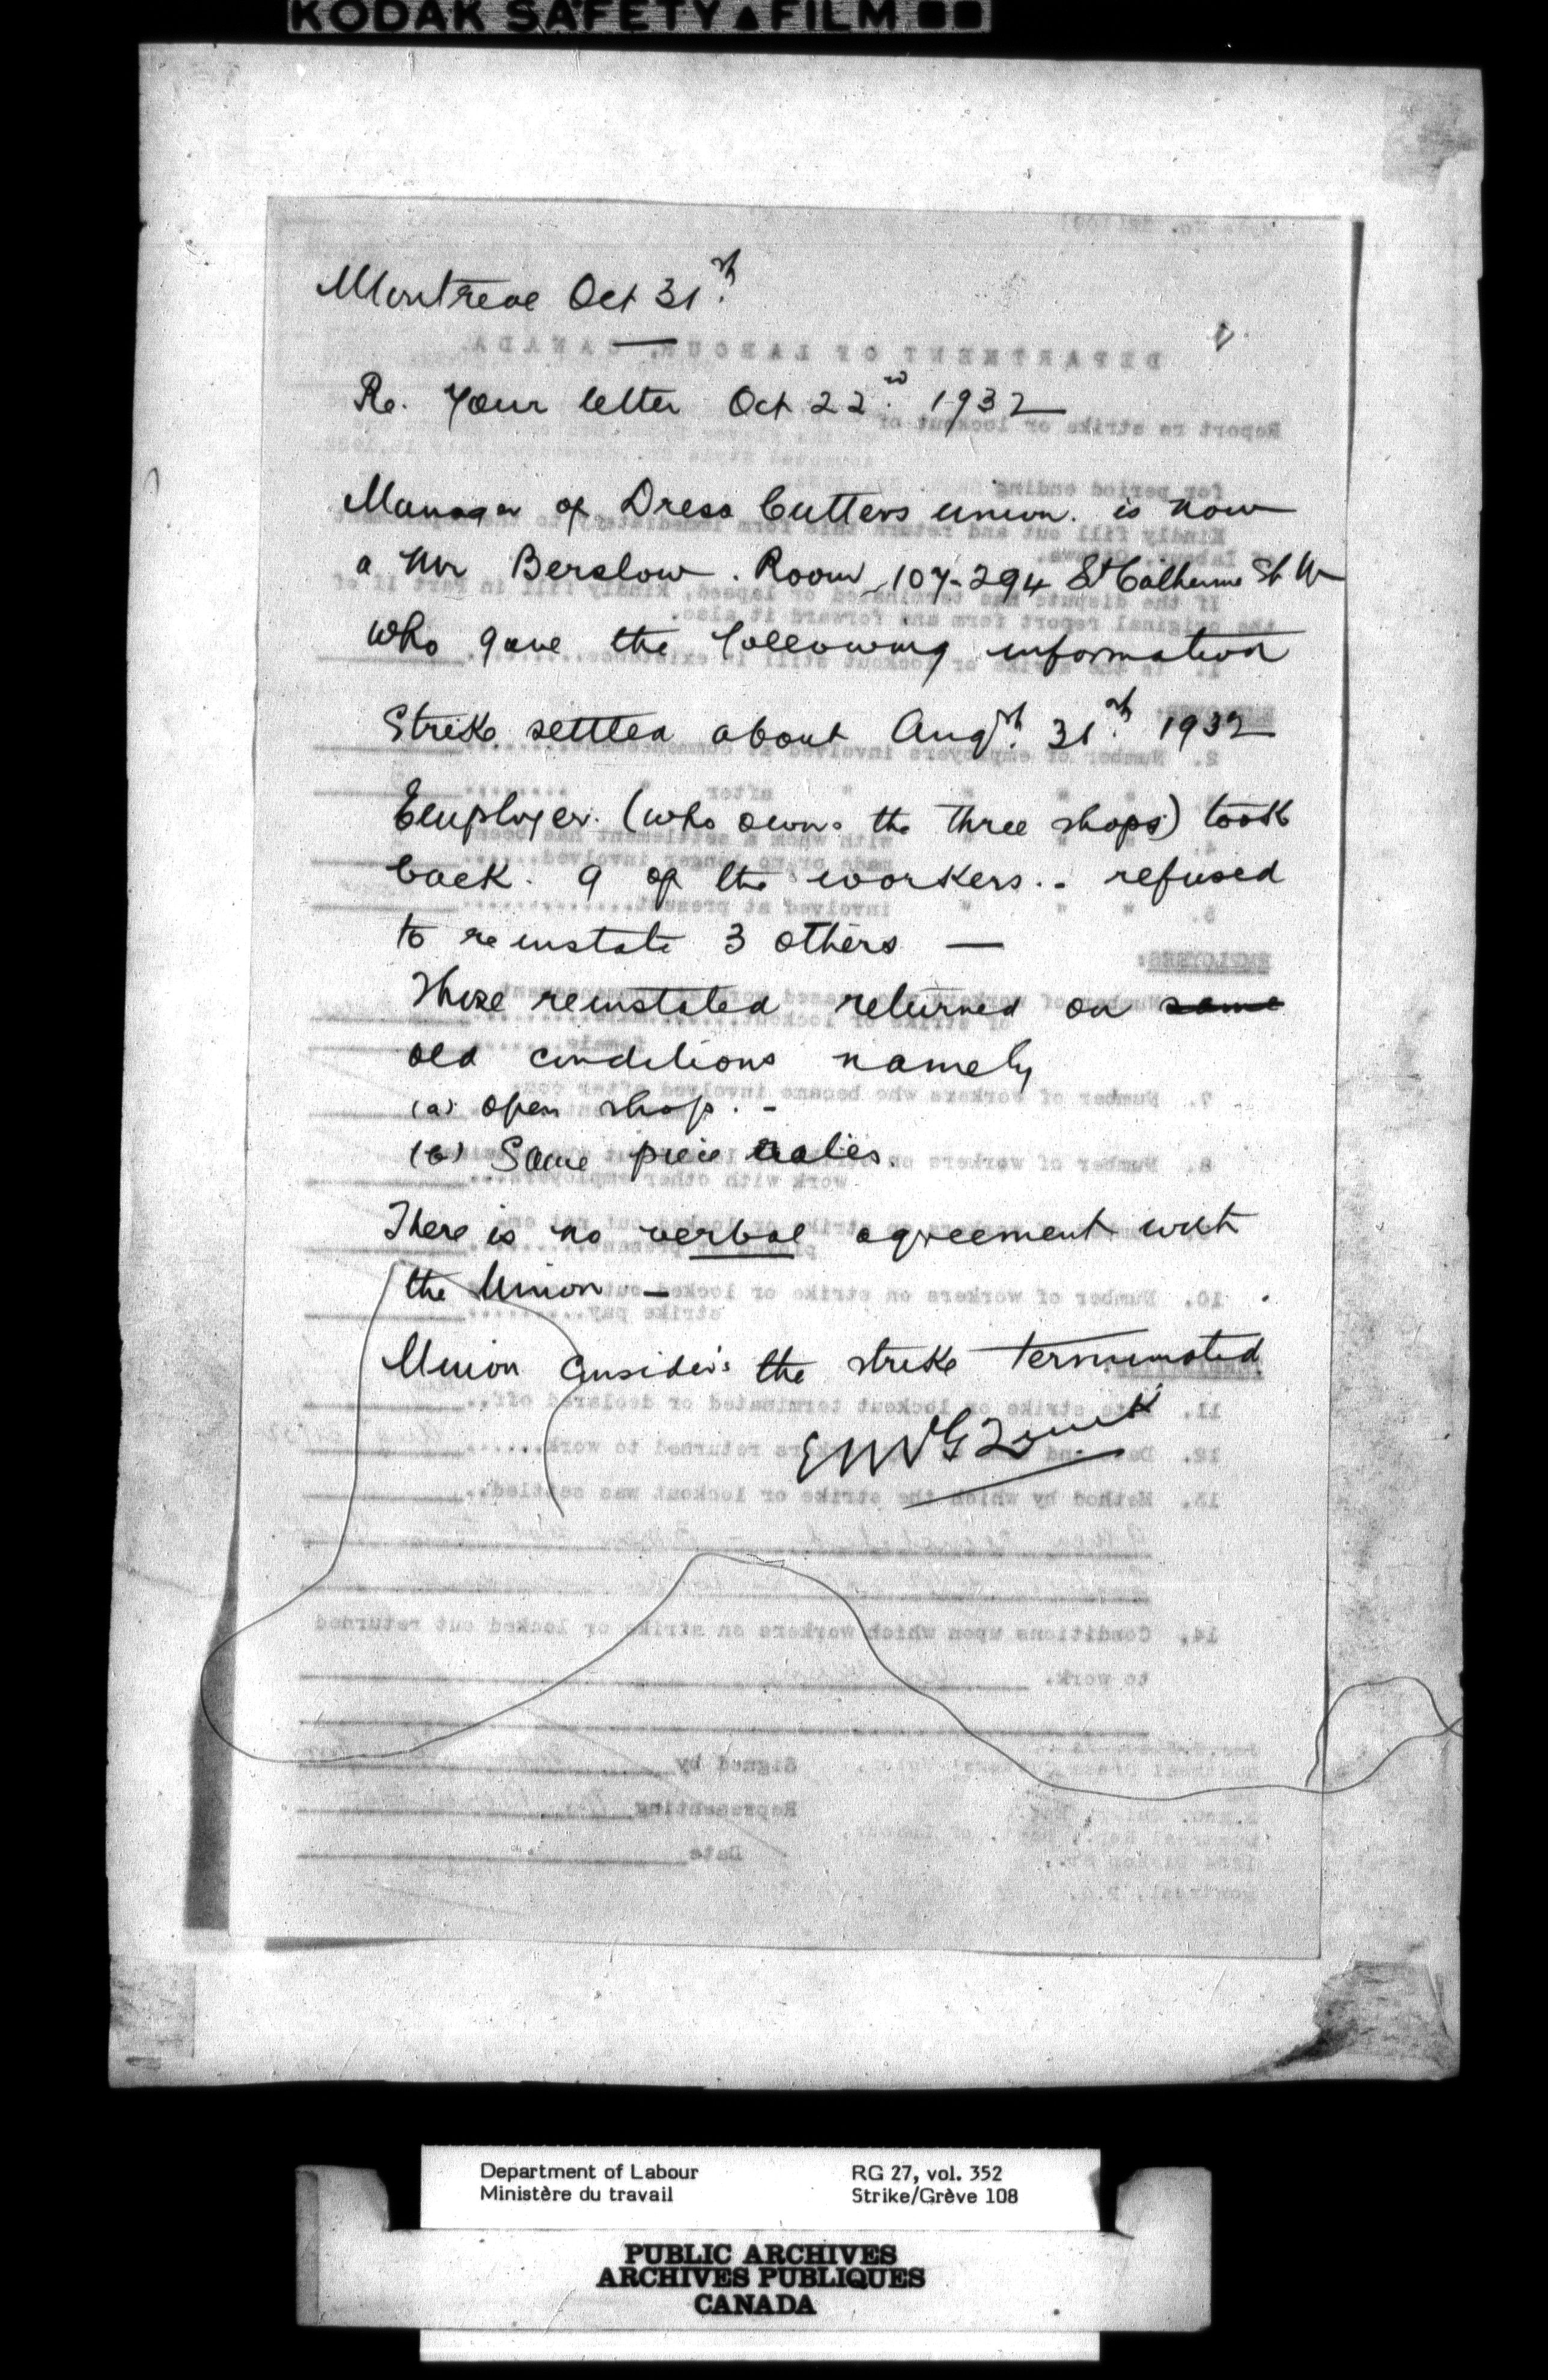 KODAK SAFETY ▲ FILM
Montreal Oct 31st
Re. Your letter Oct 22nd 1932
Manager of Dress Cutters union. is now
a Mr Berslow. Room 107-294 St Catherine St W
who gave the following information
Strike settled about Augst. 31st 1932
Employer. (who owns the three shops) took
back. 9 of the workers.. refused
to reinstate 3 others —
These reinstated returned on same
old conditions namely
(a) open shop. -
(b) Same piece rates.
There is no verbal agreement with
the Union —
Union considers the strike terminated
DEPARTMENT OF LABOUR, CANADA.
Report re strike or lockout of
for period ending
Kindly fill out and return this form immediately to the Department
of Labour, Ottawa.
If the dispute has terminated or lapsed, kindly fill in Part II of
the original report form and forward it also.
1. Is the strike or lockout still in existence
2. Number of employers involved at commencement
" " " after "
with whom a settlement has been
made or no longer involved
5. " " " involved at present
EMPLOYEES:
7. Number of workers who became involved after
8. Number of workers on
work with other employers
10. Number of workers on strike or locked out
strike pay
11. Date strike or lockout terminated or declared off
12. returned to work
13. Method by which the strike or lockout was settled
14. Conditions upon which workers on strike or locked out returned
to work.
Signed by
Representing
Date
Montreal, P.Q.
Department of Labour RG 27, vol. 352
Ministère du travail Strike/Grève 108
PUBLIC ARCHIVES
ARCHIVES PUBLIQUES
CANADA